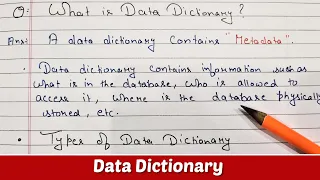 Q: What is Data Dictionary?
Ans: A data dictionary contains "Metadata".
• Data dictionary contains information such as
what is in the database, who is allowed
to access it, where is the database physically
stored, etc.
• Types of Data Dictionary
Data Dictionary